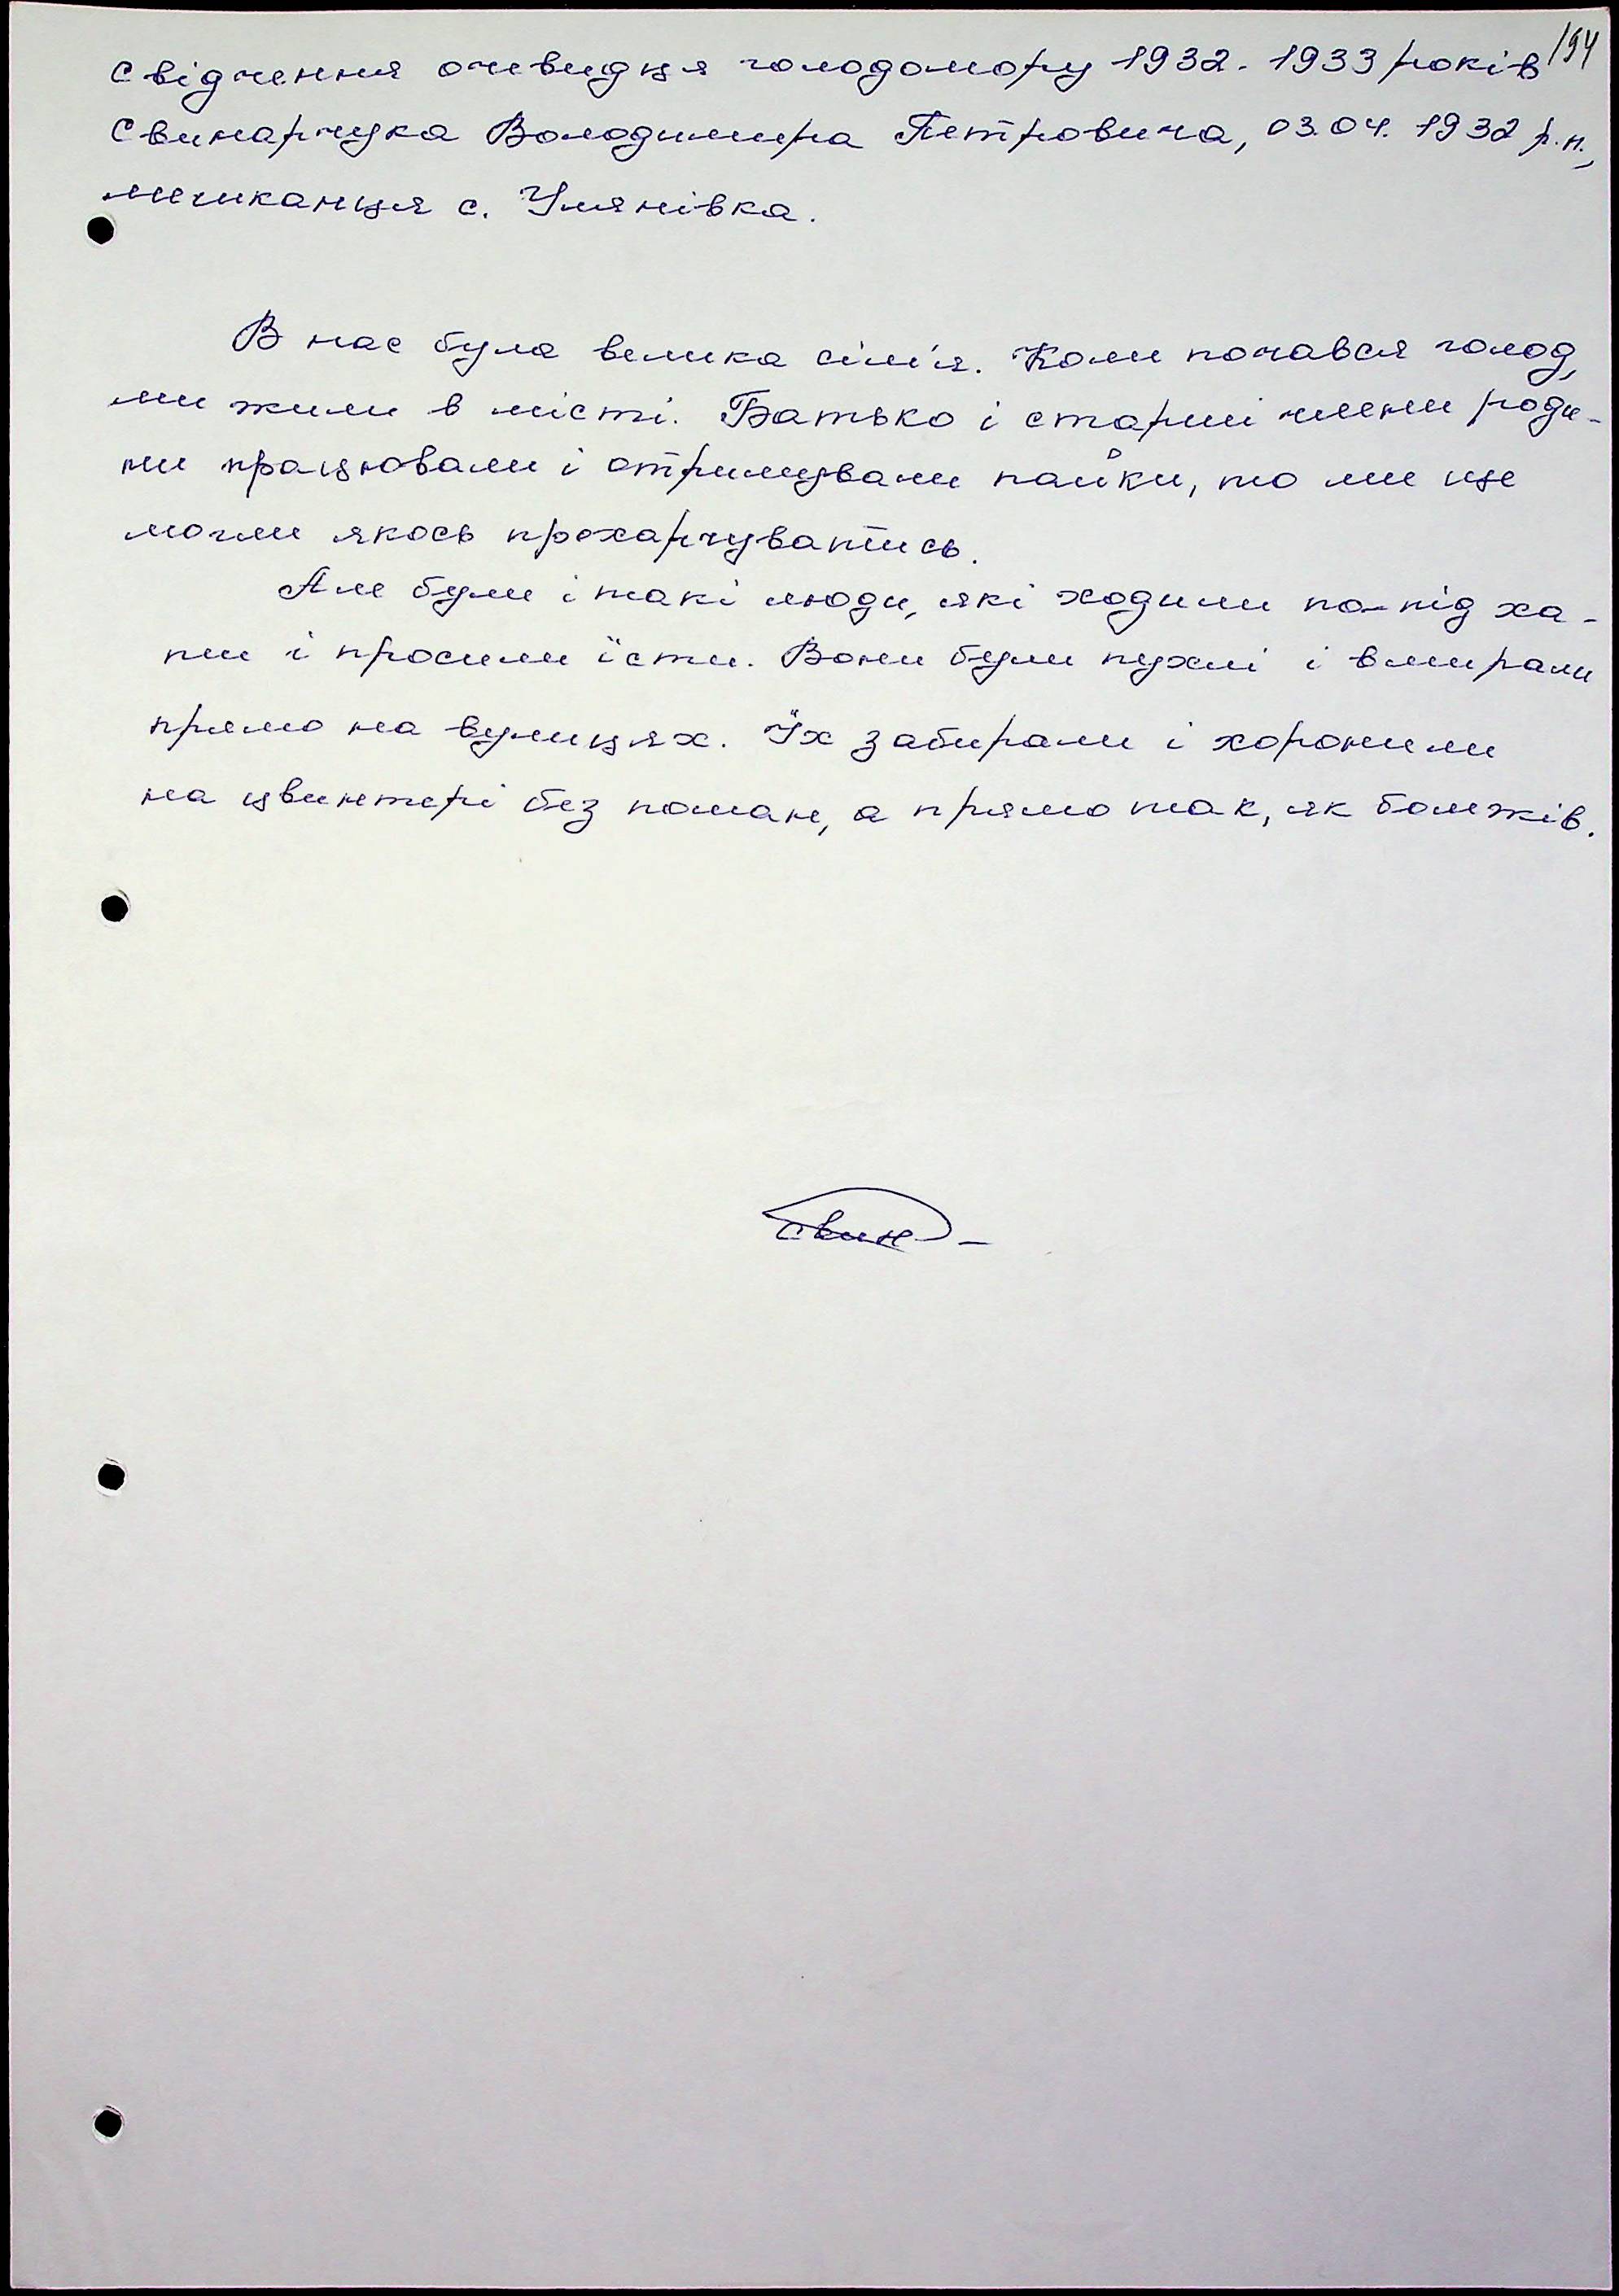 194
свідчення очевидця голодомору 1932-1933 років
Свинарчука Володимира Петровича, 03.04.1932 р.н.,
мешканця с. Улянівка.
В нас була велика сім'я. Коли почався голод,
ми жили в місті. Батько і старші члени роди-
ни працювали і отримували пайки, то ми ще
могли якось прохарчуватись.
Але були і такі люди, які ходили по-під ха-
ти і просили їсти. Вони були пухлі і вмирали
прямо на вулицях. Їх забирали і хоронили
на цвинтері без поман, а прямо так, як бомжів.
Свин